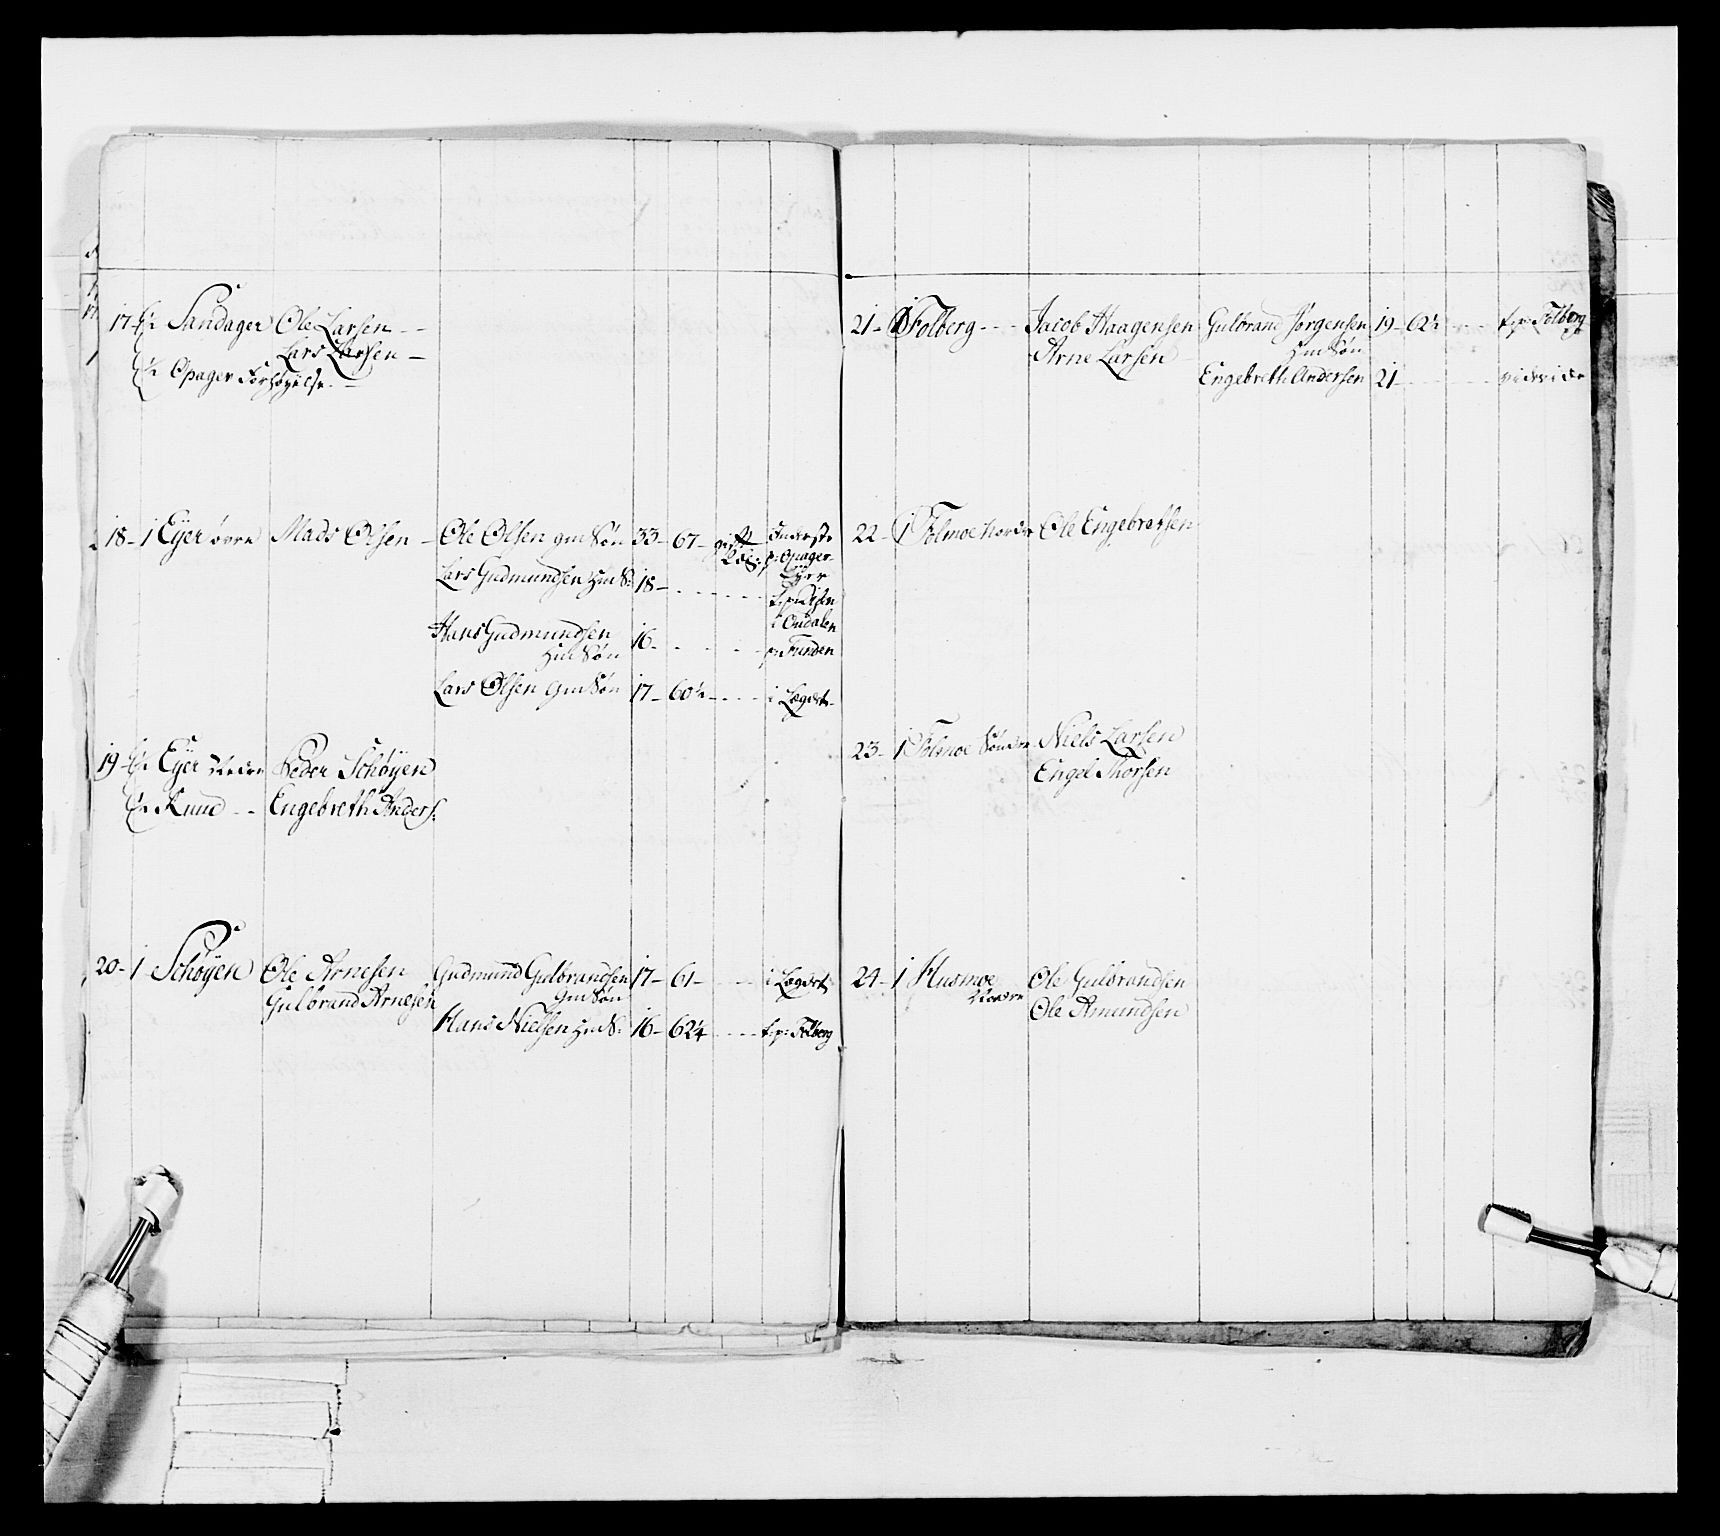 17- ½ Sandager Ole Larsen - -
Lars Larsen -
½ Opager Forhøyelse. -
18- 1 Eyer øvre Mads Olsen - Ole Olsen gm Søn 33- 67- gift Inderste
p: Opager
Eyer
Lars Gudmundsen Hm S: 18- - - - - -
i Oudalen
Hans Gudmundsen 16- - - - - p: Funden
Hm Søn
Lars Olsen gm Søn 17- 60½ - - - - i Lægdet-
19- ½ Eyer Nedre Peder Schøyen
½ Ruud - - Engebreth Anders:
20- 1 Schøyen Ole Arnesen Gudmund Gulbrandsen 17- 61- - - - i Lægdet
Gulbrand Arnesen gm Søn
Hans Nielsen Hm S: 16- 62¼ - - - t: p: Folberg
21- 1 Folberg - - - Jacob Haagensen Gulbrand Jørgensen 19- 62½ - - - t: p: Folberg
Arne Larsen Hm Søn
Engebreth Andersen 21- - - - - - vide vide
22- 1 Folmoe Nordre Ole Engebretsen
23- 1 Folmoe Søndre Niels Larsen
Engel Thorsen
24- 1 Husmoe Ole Gulbrandsen
Nordre Ole Amundsen